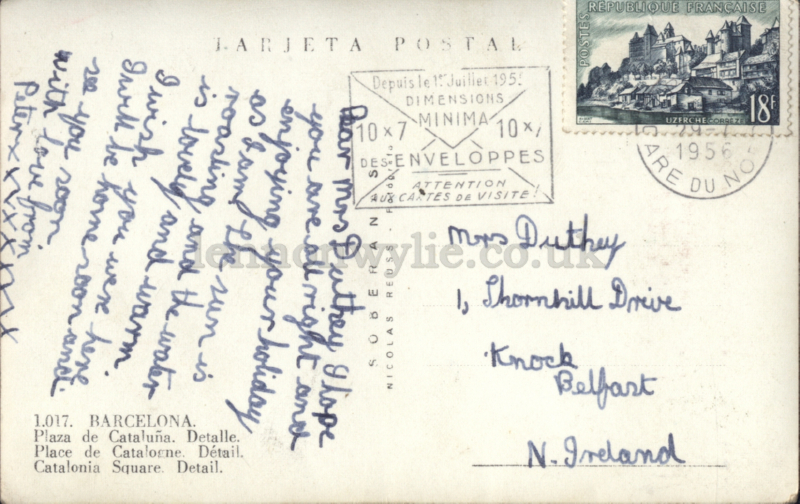 TARJETA POSTAL
POSTES
RÉPUBLIQUE FRANÇAISE
UZERCHE-CORRÈZE
18F
Depuis le 1er Juillet 195
DIMENSIONS
MINIMA
10 x 7 10 x 7
DES ENVELOPPES
ATTENTION
AUX CARTES DE VISITE!
1956
GARE DU NO
Dear Mrs Duthey I hope
you are all right and
enjoying your holiday
as I am the sun is
roasting and the water
is lovely and warm
I wish you were here
I will be home soon and
see you soon
with love from
Peter x x x x x x x
SOBERANAS
NICOLAS REUSS -
Mrs Duthey
1, Thornhill Drive
Knock
Belfast
N. Ireland
lennonwylie.co.uk
1.017. BARCELONA.
Plaza de Cataluña. Detalle.
Place de Catalogne. Détail.
Catalonia Square. Detail.